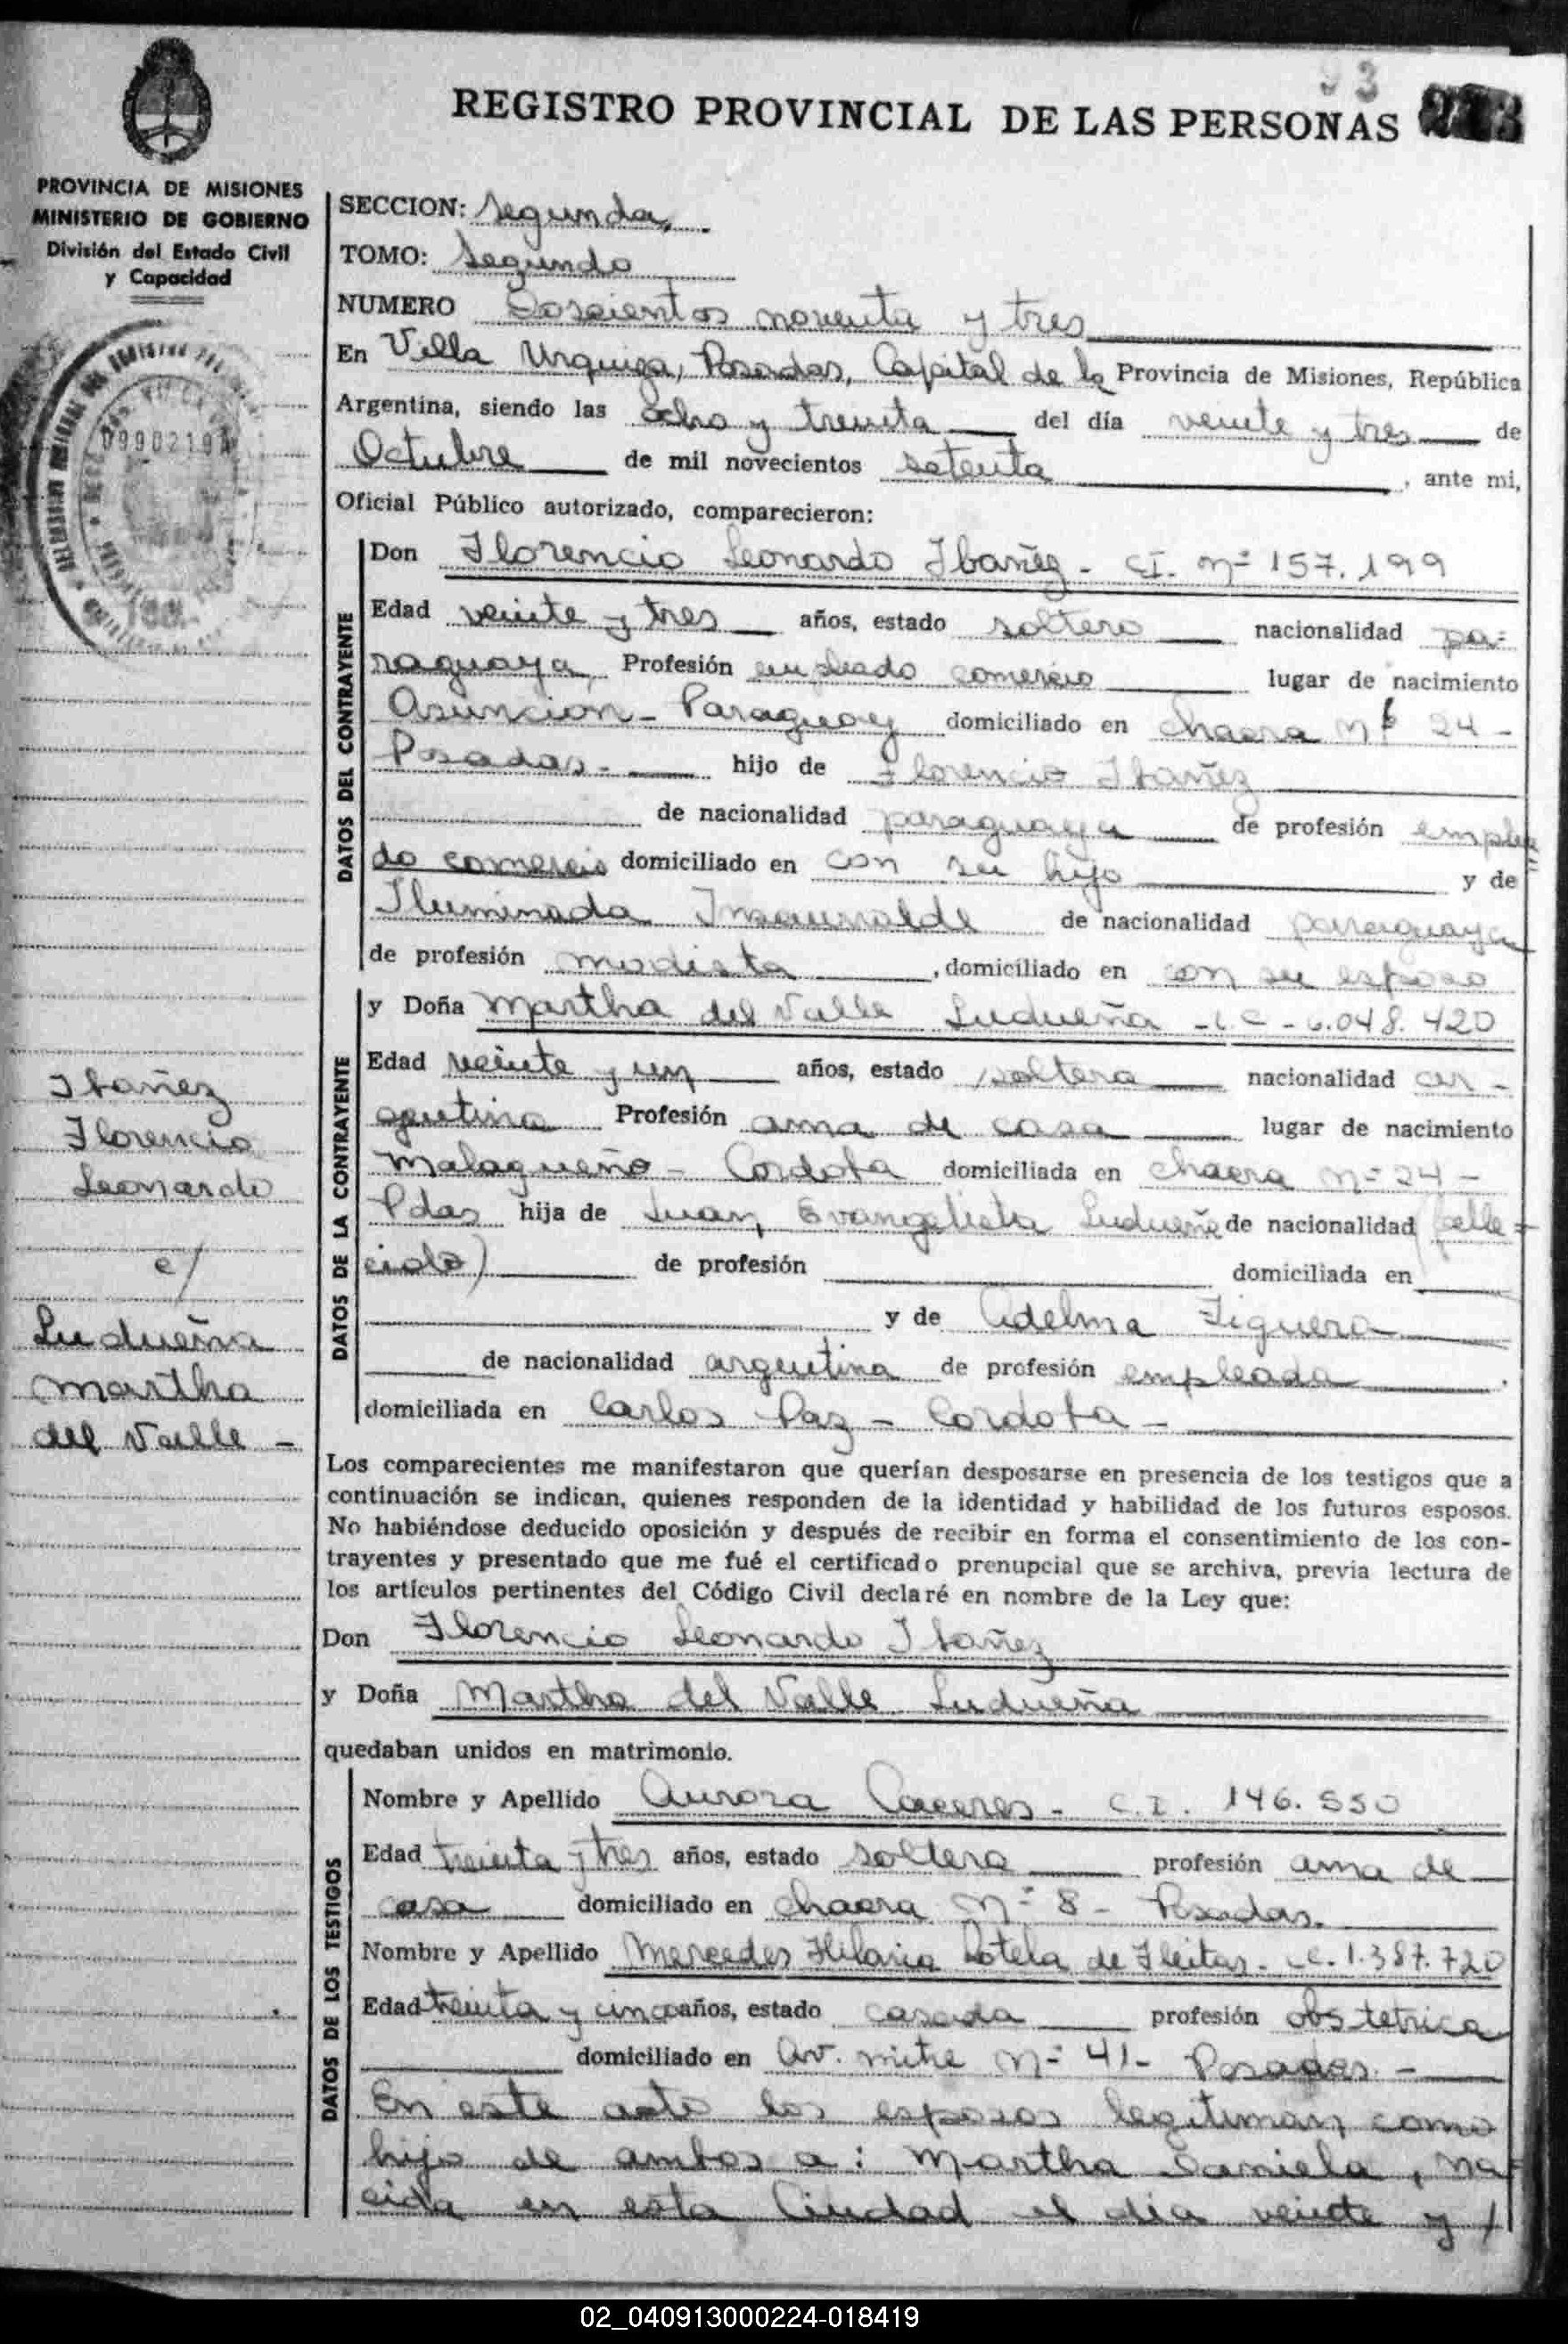 REGISTRO PROVINCIAL DE LAS PERSONAS
PROVINCIA DE MISIONES
MINISTERIO DE GOBIERNO
División del Estado Civil
y Capacidad
SECCION: Segunda
TOMO: Segundo
NUMERO Doscientos noventa y tres
En Villa Urquiza, Posadas, Capital de la Provincia de Misiones, República
Argentina, siendo las ocho y treinta del día veinte y tres de
Octubre de mil novecientos setenta, ante mi,
Oficial Público autorizado, comparecieron:
DATOS DEL CONTRAYENTE
Don Florencio Leonardo Ibañez - CI. Nº 157.199
Edad veinte y tres años, estado soltero nacionalidad pa-
raguaya, Profesión empleado comercio lugar de nacimiento
Asuncion - Paraguay domiciliado en chacra Nº 24 -
Posadas - hijo de Florencio Ibañez
de nacionalidad paraguaya de profesión emplea
do comercio domiciliado en con su hijo y de
Iluminada Insaurralde de nacionalidad paraguaya
de profesión modista, domiciliado en con su esposo
DATOS DE LA CONTRAYENTE
y Doña Martha del Valle Ludueña - LC - 6.048.420
Edad veinte y un años, estado soltera nacionalidad ar-
gentina Profesión ama de casa lugar de nacimiento
Malagueño - Cordoba domiciliada en chacra Nº 24 -
Pdas hija de Juan Evangelista Ludueña de nacionalidad (falle=
cido) de profesión domiciliada en
y de Adelma Figuera
de nacionalidad argentina de profesión empleada.
domiciliada en Carlos Paz - Cordoba -
Ibañez
Florencio
Leonardo
c/
Ludueña
Martha
del Valle -
Los comparecientes me manifestaron que querían desposarse en presencia de los testigos que a
continuación se indican, quienes responden de la identidad y habilidad de los futuros esposos.
No habiéndose deducido oposición y después de recibir en forma el consentimiento de los con-
trayentes y presentado que me fué el certificado prenupcial que se archiva, previa lectura de
los artículos pertinentes del Código Civil declaré en nombre de la Ley que:
Don Florencio Leonardo Ibañez
y Doña Martha del Valle Ludueña
quedaban unidos en matrimonio.
DATOS DE LOS TESTIGOS
Nombre y Apellido Aurora Caceres - C.I. 146.550
Edad treinta y tres años, estado soltera profesión ama de
casa domiciliado en chacra Nº 8 - Posadas.
Nombre y Apellido Mercedes Hilaria Sotela de Fleitas - LC. 1.387.720
Edad treinta y cinco años, estado casada profesión obstetrica
domiciliado en Av. mitre Nº 41 - Posadas. -
En este acto los esposos legitiman como
hijo de ambos a: Martha Daniela, na=
cida en esta Ciudad el día veinte y /
02_040913000224-018419